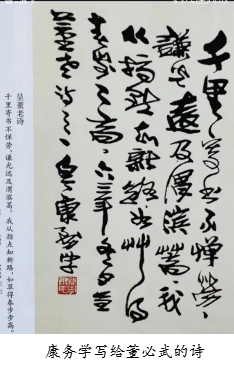 千里寄書不憚勞
謙光遠及渭濱蒿我
從指點知新路如艸得
春步步高六三年
董老詩之 康務學
呈董老诗
千里寄书不惮劳，谦光远及渭滨蒿。我从指点知新路，如草得春步步高。
康务学写给董必武的诗